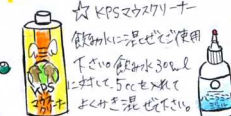 ☆ KPSマウスクリーナー
飲み水に混ぜてご使用
下さい。飲み水30mll
に対して.5ccを入れて
よくかき混ぜて下さい。
KPS
マウスク
リ
ハーモニー